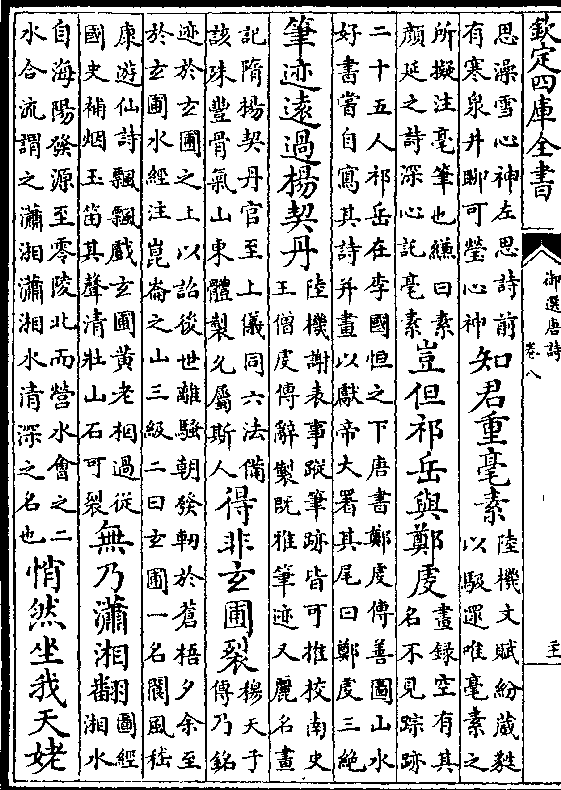 欽定四庫全書
御選唐詩
卷八
思澡雪心神左思詩前
有寒泉井聊可瑩心神
知君重毫素
陸機文賦紛葳蕤
以馺遝唯毫素之
所擬注毫筆也縑曰素
顔延之詩深心託毫素
豈但祁岳與鄭虔
畫錄空有其
名不見踪跡
二十五人祁岳在李國恒之下唐書鄭虔傳善圖山水
好書嘗自寫其詩并畫以獻帝大署其尾曰鄭虔三絶
筆迹遠過楊契丹
陸機謝表事蹤筆跡皆可推校南史
王僧虔傳辭製既雅筆迹又麗名畫
記隋楊契丹官至上儀同六法備
該殊豐骨氣山東體製允屬斯人
得非玄圃裂
穆天子
傳乃銘
迹於玄圃之上以詔後世離騷朝發軔於蒼梧夕余至
於玄圃水經注崑崙之山三級二曰玄圃一名閬風嵇
康遊仙詩飄飄戲玄圃黄老相過從
國史補烟玉笛其聲清壯山石可裂
無乃瀟湘翻
圖經
湘水
自海陽發源至零陵北而營水會之二
水合流謂之瀟湘瀟湘水清深之名也
悄然坐我天姥